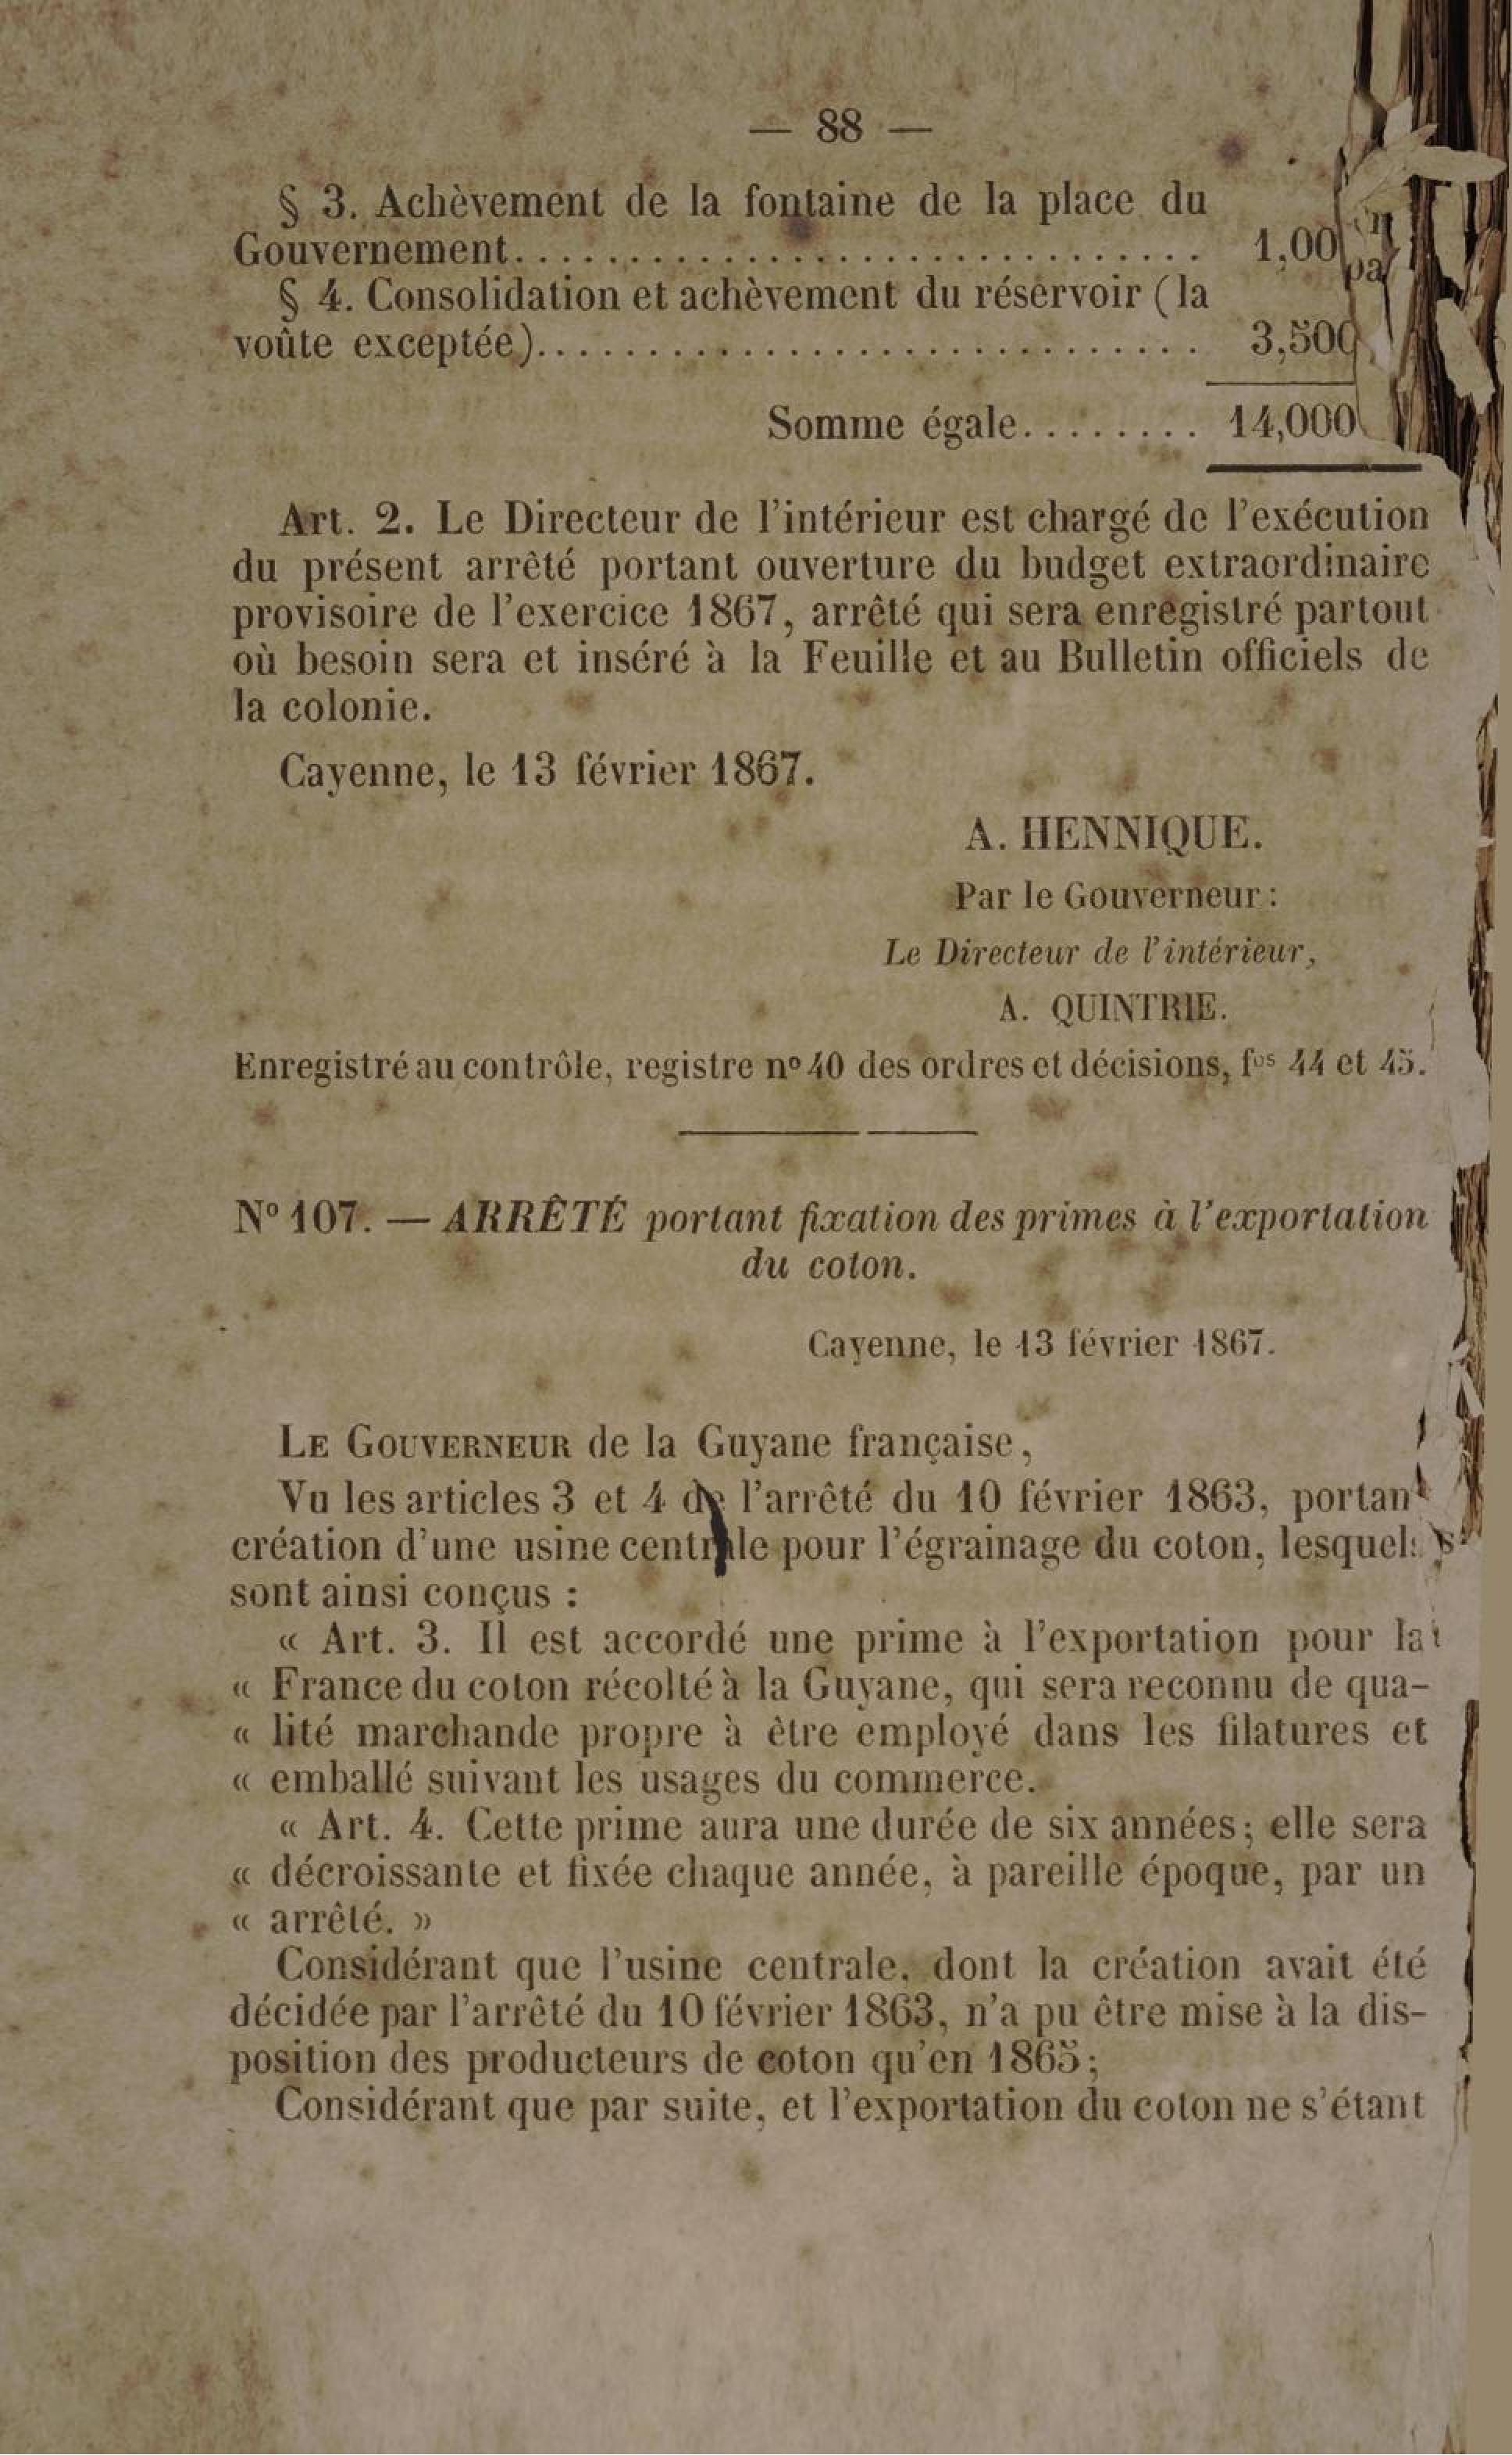 — 88 —
§ 3. Achèvement de la fontaine de la place du
Gouvernement............................... 1,00
§ 4. Consolidation et achèvement du réservoir (la
voûte exceptée).............................. 3,500
Somme égale........ 14,000
Art. 2. Le Directeur de l'intérieur est chargé de l'exécution
du présent arrêté portant ouverture du budget extraordinaire
provisoire de l'exercice 1867, arrêté qui sera enregistré partout
où besoin sera et inséré à la Feuille et au Bulletin officiels de
la colonie.
Cayenne, le 13 février 1867.
A. HENNIQUE.
Par le Gouverneur :
Le Directeur de l'intérieur,
A. QUINTRIE.
Enregistré au contrôle, registre nº 40 des ordres et décisions, fos 44 et 45.
Nº 107. — ARRÊTÉ portant fixation des primes à l'exportation
du coton.
Cayenne, le 13 février 1867.
LE GOUVERNEUR de la Guyane française,
Vu les articles 3 et 4 de l'arrêté du 10 février 1863, portant
création d'une usine centrale pour l'égrainage du coton, lesquels
sont ainsi conçus :
« Art. 3. Il est accordé une prime à l'exportation pour la
« France du coton récolté à la Guyane, qui sera reconnu de qua-
« lité marchande propre à être employé dans les filatures et
« emballé suivant les usages du commerce.
« Art. 4. Cette prime aura une durée de six années; elle sera
« décroissante et fixée chaque année, à pareille époque, par un
« arrêté. »
Considérant que l'usine centrale, dont la création avait été
décidée par l'arrêté du 10 février 1863, n'a pu être mise à la dis-
position des producteurs de coton qu'en 1865;
Considérant que par suite, et l'exportation du coton ne s'étant